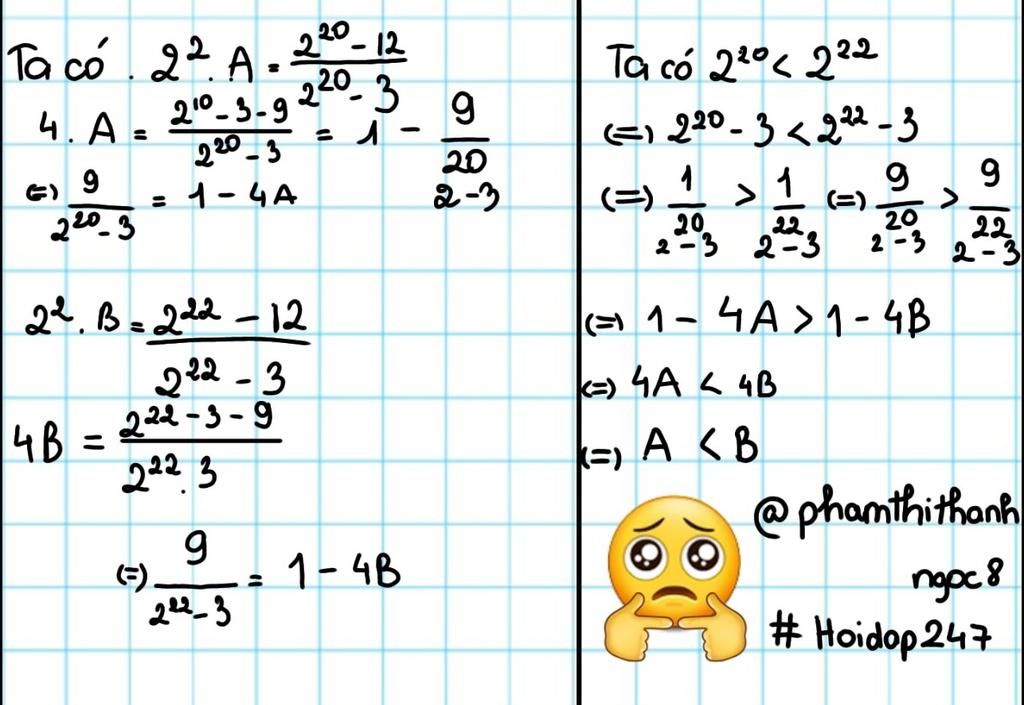 Ta có . 2². A = (2²⁰ - 12)/(2²⁰ - 3)
4. A = (2¹⁰ - 3 - 9)/(2²⁰ - 3) = 1 - 9/(2²⁰ - 3)
(=) 9/(2²⁰ - 3) = 1 - 4A
2². B = (2²² - 12)/(2²² - 3)
4B = (2²² - 3 - 9)/(2²² . 3)
(=) 9/(2²² - 3) = 1 - 4B
Ta có 2²⁰ < 2²²
(=) 2²⁰ - 3 < 2²² - 3
(=) 1/(2²⁰ - 3) > 1/(2²² - 3) (=) 9/(2²⁰ - 3) > 9/(2²² - 3)
(=) 1 - 4A > 1 - 4B
(=) 4A < 4B
(=) A < B
@phamthithanh
ngoc8
# Hoidap247